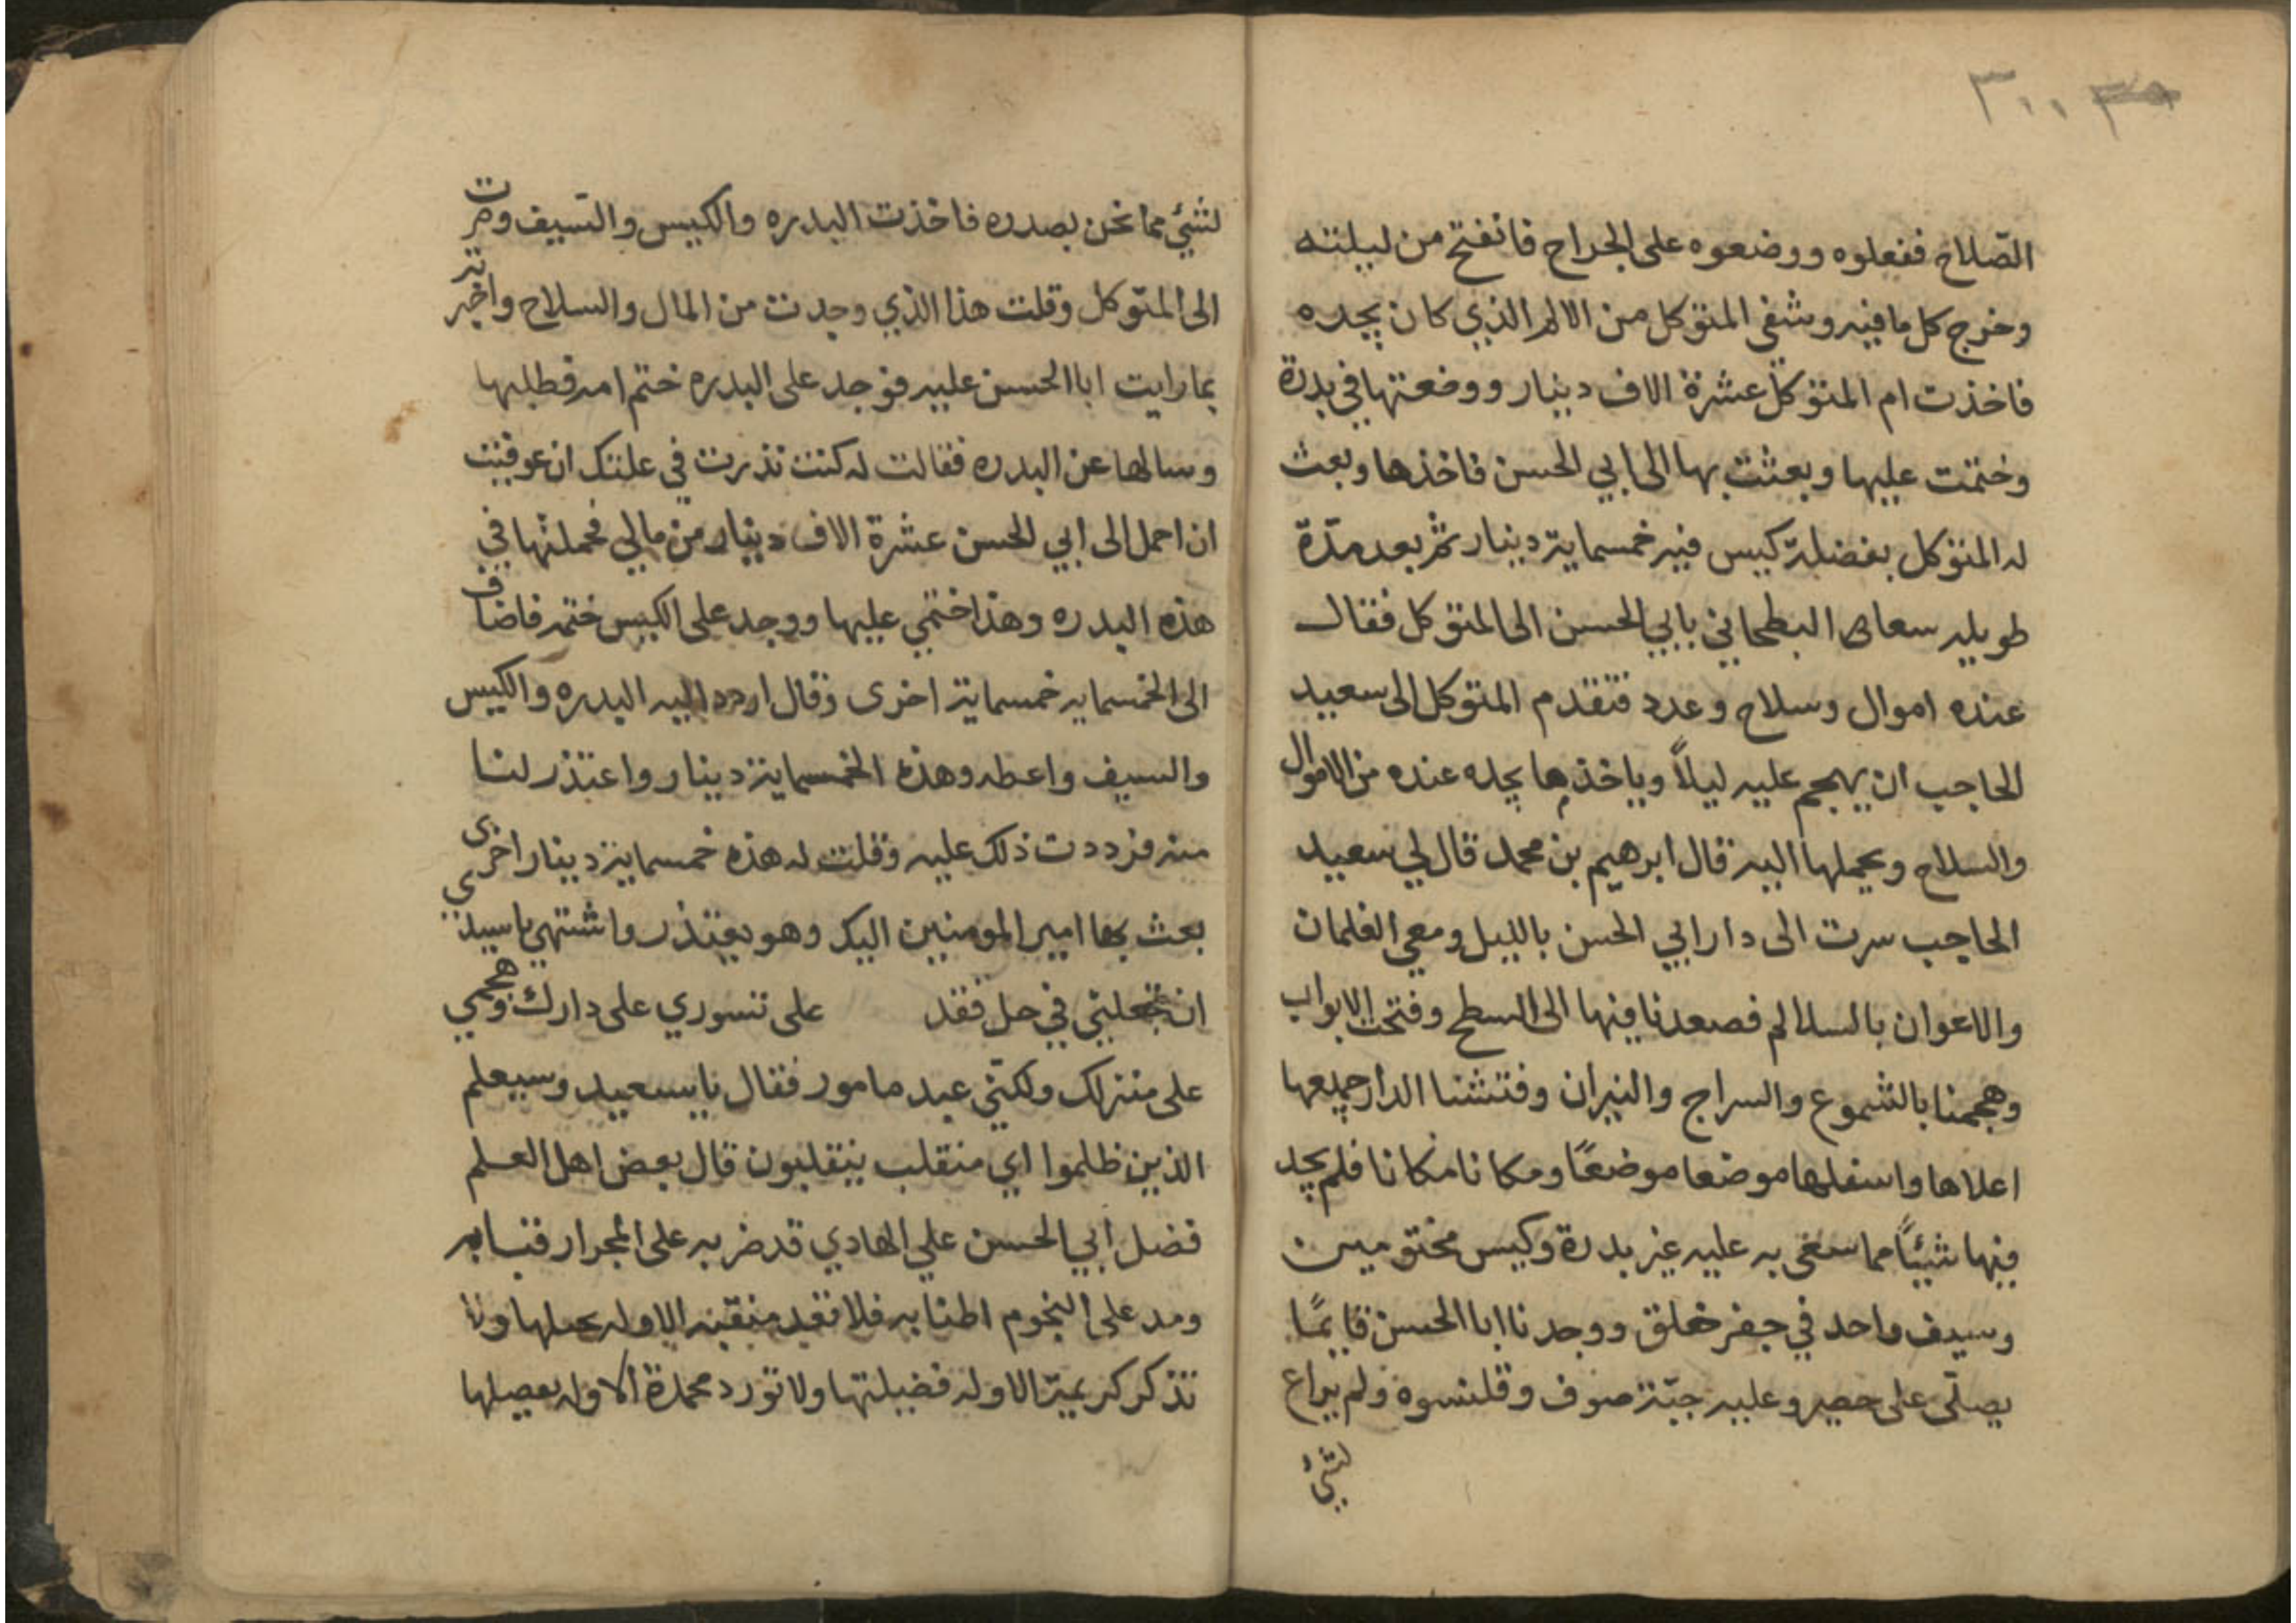 ٣٠٠
الصّلاح ففعلوه ووضعوه على الجراح فانفتح من ليلته
وخرج كل ما فيه وشفى المتوكل من الالم الذي كان يجده
فاخذت ام المتوكل عشرة الاف دينار ووضعتها في بدرة
وختمت عليها وبعثت بها الى ابي الحسن فاخذها وبعث
له المتوكل بفضلة كيس فيه خمسماية دينار ثم بعد مدّة
طويله سعاى البطحاني بابي الحسن الى المتوكل فقال
عنده اموال وسلاح وعدد فتقدم المتوكل الى سعيد
الحاجب ان يهجم عليه ليلاً وياخذ ها يجده عنده من الاموال
والسلاح ويحملها اليه قال ابرهيم بن محمد قال لي سعيد
الحاجب سرت الى دار ابي الحسن بالليل ومعي الغلمان
والاعوان بالسلالم فصعدنا فيها الى السطح وفتحت الابواب
وهجمنا بالشموع والسراج والنيران وفتشنا الدار جميعها
اعلاها واسفلها موضعا موضعًا ومكانا مكانا فلم يجد
فيها شيئًا مما سعى به عليه غير بدرة وكيس مختومين
وسيف واحد في جفر خلق ووجدنا ابا الحسن قايمًا
يصلّى على حصير وعليه جبّة صوف وقلنسوه ولم يراع
لشئ
لشئي مما نحن بصدده فاخذت البدره والكيس والسيف وصرت
الى المتوكل وقلت هذا الذي وجدت من المال والسلاح واخبرته
بما رايت ابا الحسن عليه فوجد على البدره ختم امه فطلبها
وسالها عن البدره فقالت له كنت نذرت في علتك ان عوفيت
ان احمل الى ابي الحسن عشرة الاف دينار من مالي فحملتها في
هذه البدره وهذا ختمي عليها ووجد على الكيس ختمه فاضاف
الى الخمسمايه خمسماية اخرى وقال اردد اليه البدره والكيس
والسيف واعطه وهذه الخمسماية دينار واعتذر لنا
منه فرددت ذلك عليه وقلت له هذه خمسماية دينار اخرى
بعث بها امير المومنين اليك وهو يعتذر واشتهي ياسيدى
ان تجعلني في حل فقد على تسوري على دارك وهجمي
على منزلك ولكني عبد مامور فقال ياسعيد وسيعلم
الذين ظلموا اي منقلب ينقلبون قال بعض اهل العلم
فضل ابي الحسن علي الهادي قد ضرب على المجرار قبابه
ومد على النجوم اطنابه فلا تعد منقبه الا وله ولا
تذكر كريمة الا وله فضيلتها ولا تورد محمدة الا وله